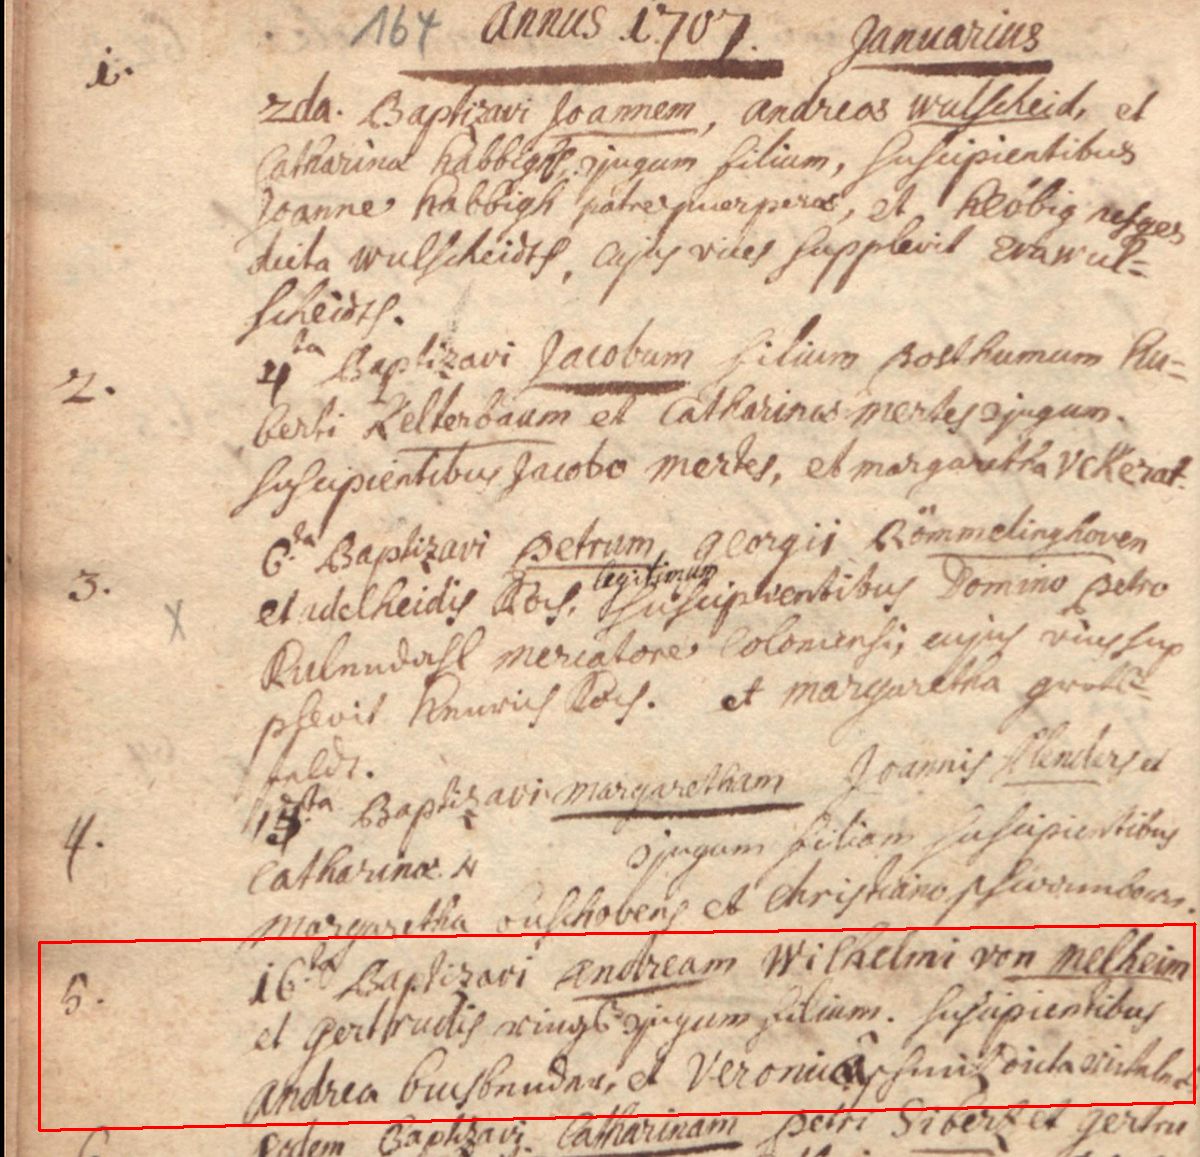 164 Annus 1707. Januarius
1.
2da. Baptizavi Joannem, Andreas Wulscheid, et
Catharina Habbighs, jugum filium, suscipientibus
Joanne Habbigh patre puerperae, et
dicta Wulscheidts, cujus vices supplevit Eva Wul=
scheidts.
2. 4ta Baptizavi Jacobum filium Posthumum Hu=
berti Kelterbaum et Catharinae Mertes jugum.
suscipientibus Jacobo Mertes, et Margaretha Uckerat.
3. 6ta Baptizavi Petrum, Georgii Römmelinghoven
legitimum
et Adelheidis suscipientibus Domino Petro
X mercatore Coloniensi, cujus vices sup
plevit Henrich et Margaretha
feldt.
4. 15ta Baptizavi Margaretham Joannis Flenders et
Catharinae N jugum filiam suscipientibus
Margaretha et Christiano
5. 16ta Baptizavi Andream Wilhelmi von Melheim
et Gertrudis jugum filium. Suscipientibus
Andrea et Veronica dicta
6. eodem Baptizavi Catharinam Petri Sibertz et Gertru